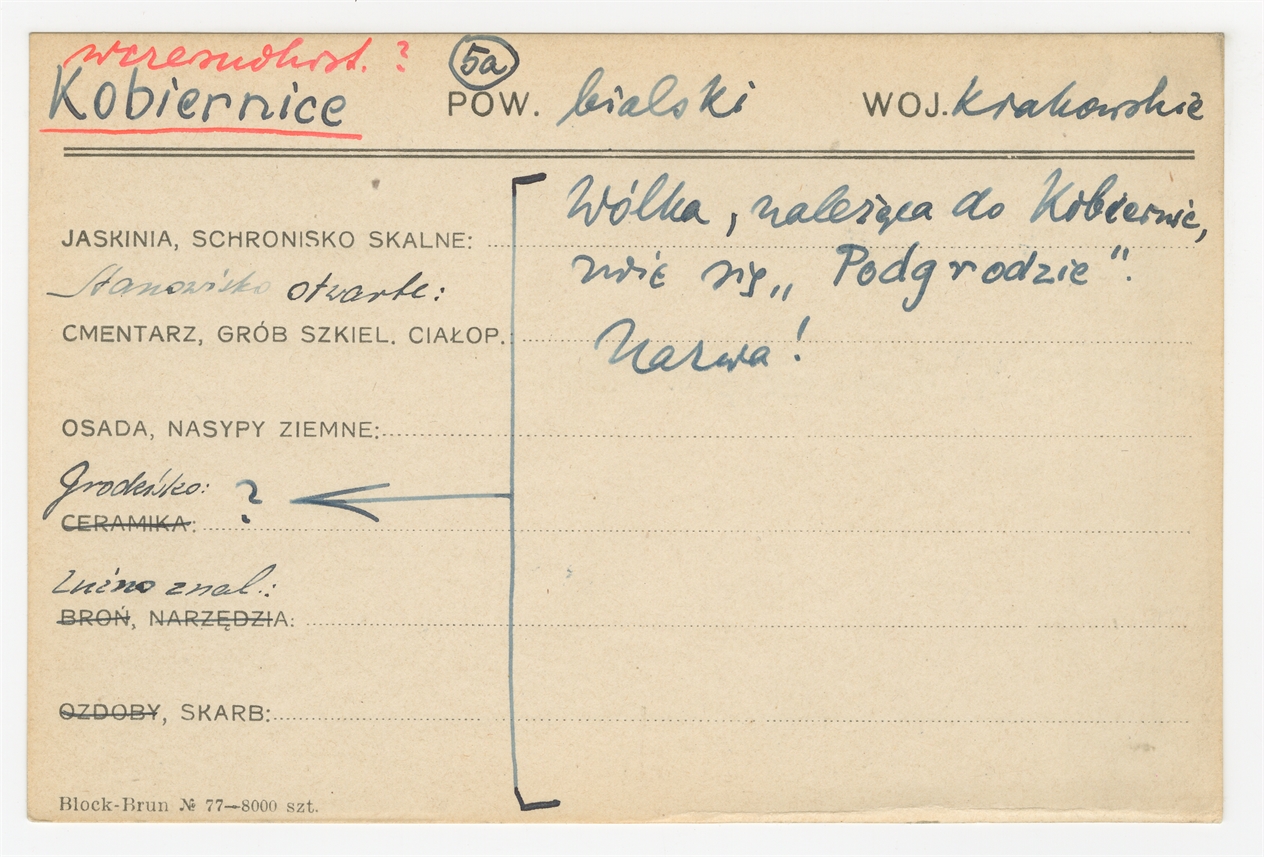 wczesnohist. ?
5a
Kobiernice POW. bialski WOJ. Krakowskie
Wólka, należąca do Kobiernic,
JASKINIA, SCHRONISKO SKALNE:
zwie się „Podgrodzie".
Stanowisko otwarte:
CMENTARZ, GRÓB SZKIEL. CIAŁOP.:
Nazwa!
OSADA, NASYPY ZIEMNE:
Grodzisko: ?
CERAMIKA:
Luźno znal.:
BROŃ, NARZĘDZIA:
OZDOBY, SKARB:
Block-Brun № 77—8000 szt.